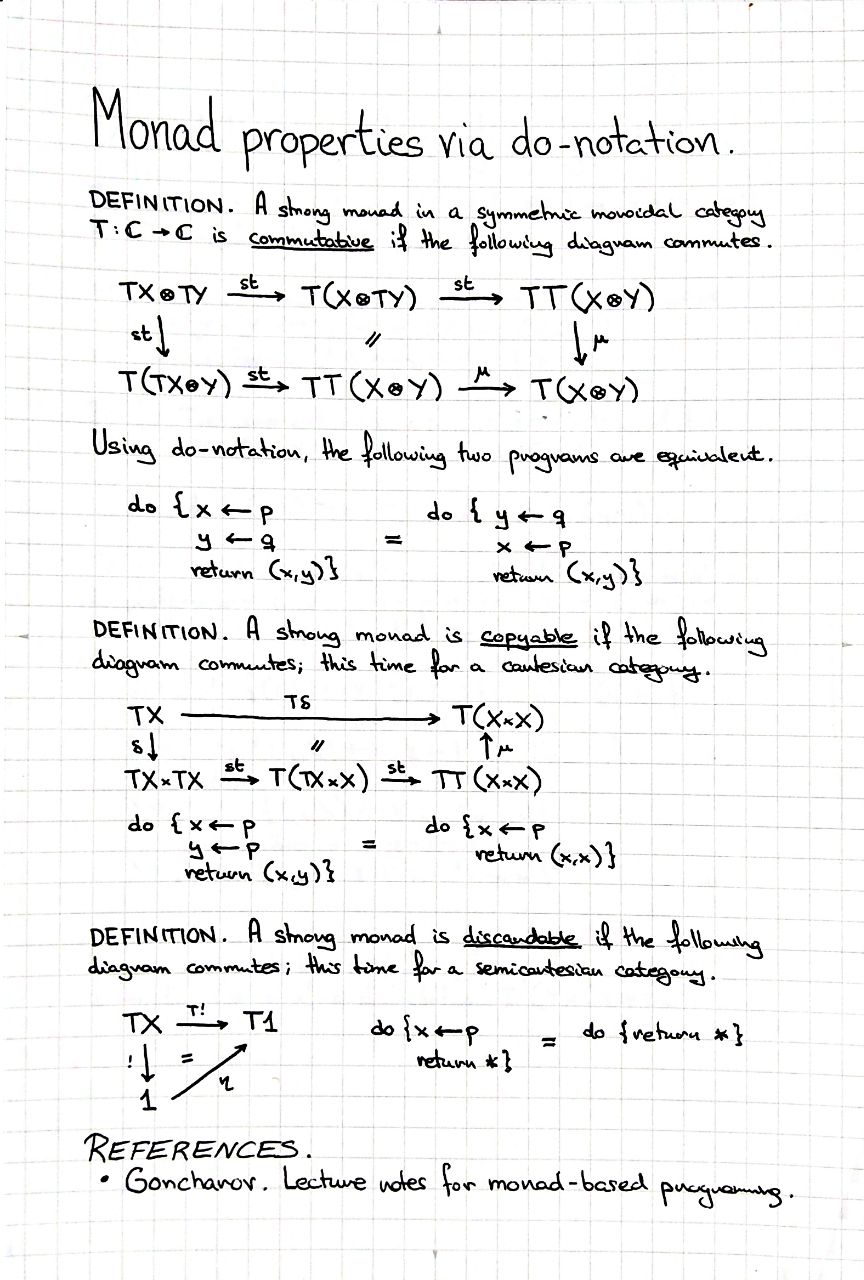 Monad properties via do-notation.
DEFINITION. A strong monad in a symmetric monoidal category
T : ℂ → ℂ is commutative if the following diagram commutes.
TX⊗TY —st→ T(X⊗TY) —st→ TT(X⊗Y)
st↓ // ↓μ
T(TX⊗Y) —st→ TT(X⊗Y) —μ→ T(X⊗Y)
Using do-notation, the following two programs are equivalent.
do { x ← p do { y ← q
y ← q = x ← p
return (x,y)} return (x,y)}
DEFINITION. A strong monad is copyable if the following
diagram commutes; this time for a cartesian category.
TX —Tδ→ T(X×X)
δ↓ // ↑μ
TX×TX —st→ T(TX×X) —st→ TT(X×X)
do { x ← p do { x ← p
y ← p = return (x,x)}
return (x,y)}
DEFINITION. A strong monad is discardable if the following
diagram commutes; this time for a semicartesian category.
TX —T!→ T1 do {x ← p = do {return *}
!↓ = ↗η return *}
1
REFERENCES.
• Goncharov. Lecture notes for monad-based programming.